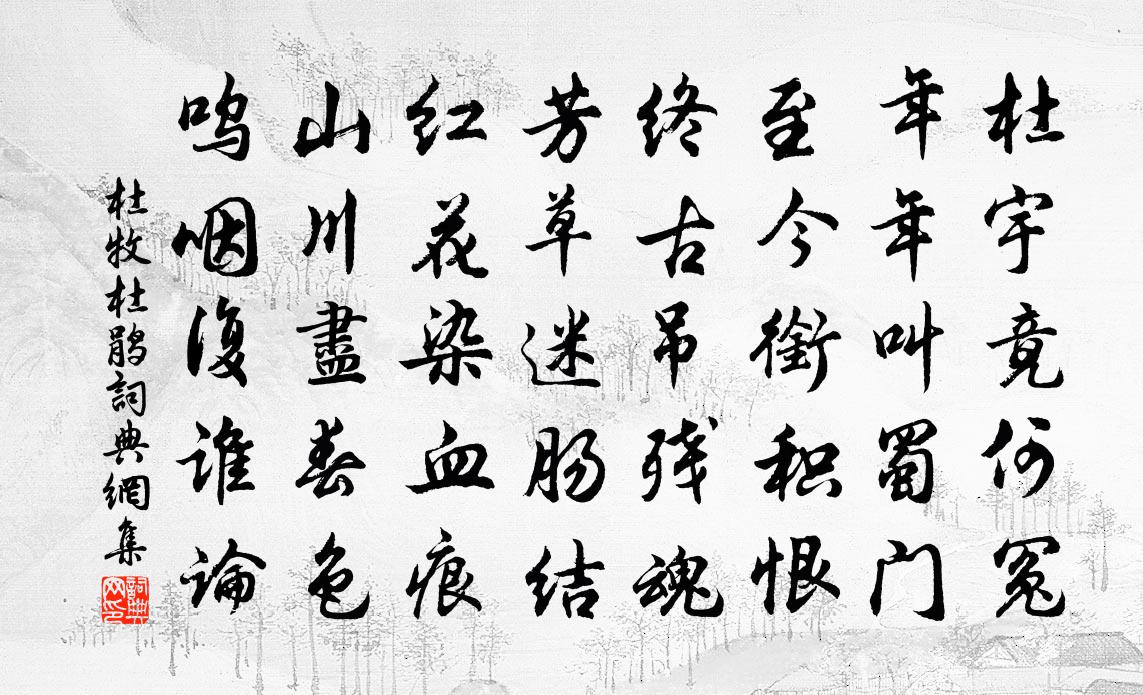 杜宇竟何冤
年年叫蜀门
至今衔积恨
终古吊残魂
芳草迷肠结
红花染血痕
山川盡春色
呜咽復谁论
杜牧杜鹃詞典網集
詞典网印